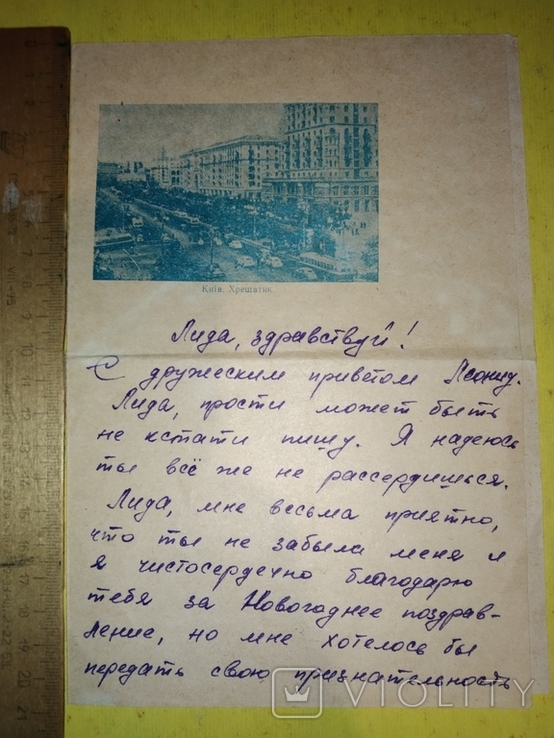 Київ. Хрещатик.
Лида, здравствуй!
С дружеским приветом Леонид.
Лида, прости может быть
не кстати пишу. Я надеюсь
ты всё же не рассердишься.
Лида, мне весьма приятно,
что ты не забыла меня и
я чистосердечно благодарю
тебя за Новогоднее поздрав-
ление, но мне хотелось бы
передать свою признательность
VIOLITY